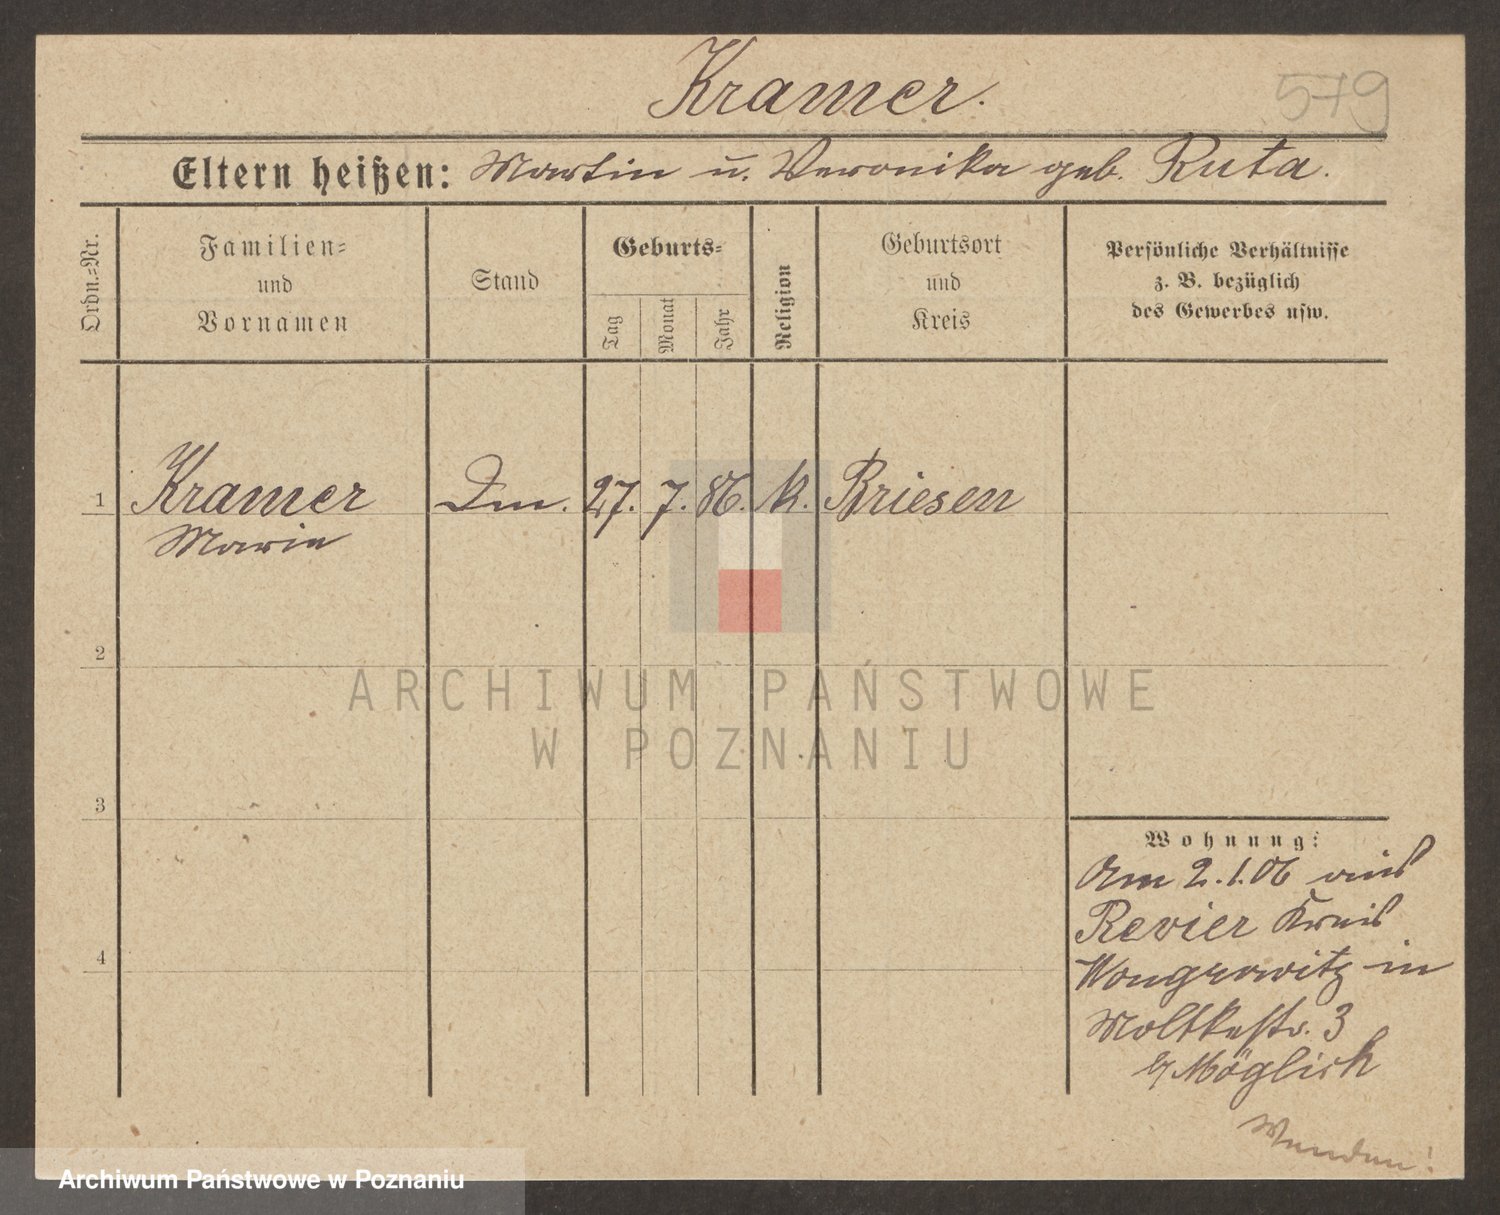 Kramer.
579
Eltern heißen: Martin u. Veronika geb. Ruta.
Ordn.=Nr.
Familien=
und
Vornamen
Stand
Geburts=
Tag
Monat
Jahr
Religion
Geburtsort
und
Kreis
Persönliche Verhältnisse
z. B. bezüglich
des Gewerbes usw.
1 Kramer Dm. 27. 7. 86. k. Briesen
Marie
2
3
4
Wohnung:
Am 2.1.06 aus
Revier Kreis
Wongrowitz in
Moltkestr. 3
b/ Möglich
Wenden!
ARCHIWUM PAŃSTWOWE
W POZNANIU
Archiwum Państwowe w Poznaniu